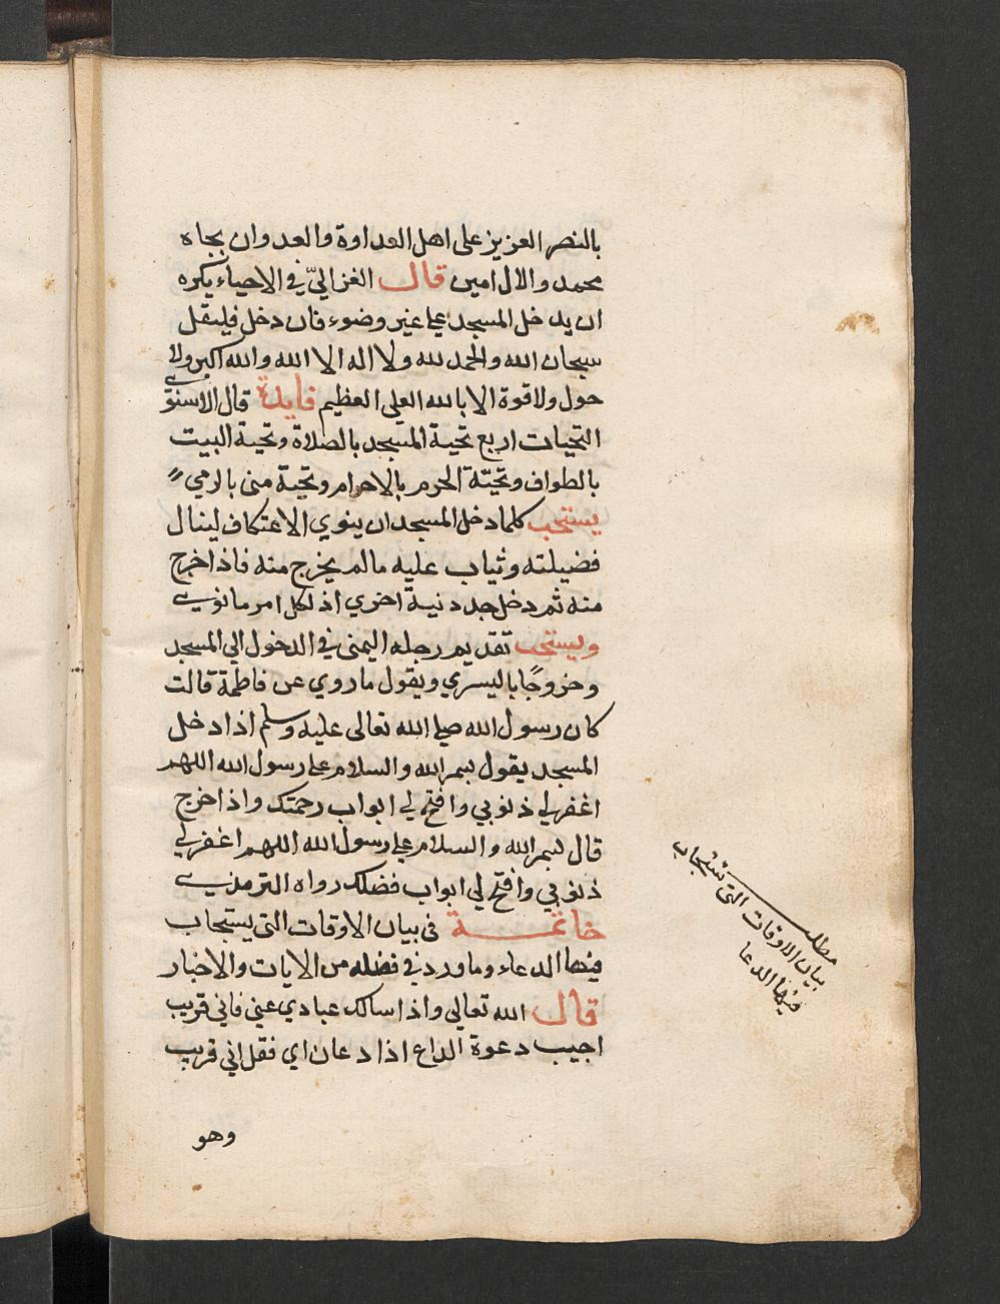 بالنصر العزيز على اهل العداوة والعدوان بجاه
محمد والال امين قال الغزاليّ في الاحياء يكره
ان يدخل المسجد على غير وضوء فان دخل فليقل
سبحان الله والحمد لله ولا اله الا الله والله اكبر ولا
حول ولا قوة الا بالله العلي العظيم فايدة قال الاسنوي
التحيات اربع تحية المسجد بالصلاة وتحية البيت
بالطواف وتحيّة الحرم بالاحرام وتحية منى بالرمي
يستحب كلما دخل المسجد ان ينوي الاعتكاف لينال
فضيلته وثياب عليه ما لم يخرج منه فاذا خرج
منه ثم دخل جدد نية اخري اذ لكل امر ما نوي
ويستحب تقديم رجله اليمنى في الدخول الي المسجد
وخروجًا باليسري ويقول ما روي عن فاطمة قالت
كان رسول الله صلى الله تعالى عليه وسلم اذا دخل
المسجد يقول بسم الله والسلام على رسول الله اللهم
اغفر لي ذنوبي وافتح لي ابواب رحمتك واذا خرج
قال بسم الله والسلام على رسول الله اللهم اغفر لي
ذنوبي وافتح لي ابواب فضلك رواه الترمذي
خاتمة في بيان الاوقات التي يستجاب
فيها الدعاء وما ورد في فضله من الايات والاخبار
قال الله تعالى واذا سالك عبادي عني فاني قريب
اجيب دعوة الداع اذا دعان اي فقل اني قريب
وهو
مطلب
بيان الاوقات التي تستجاب
فيها الدعا